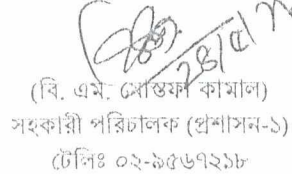 ২৪/৫/
(বি. এম. মোস্তফা কামাল)
সহকারী পরিচালক (প্রশাসন-১)
টেলিঃ ০২-৯৫৬৭২১৮